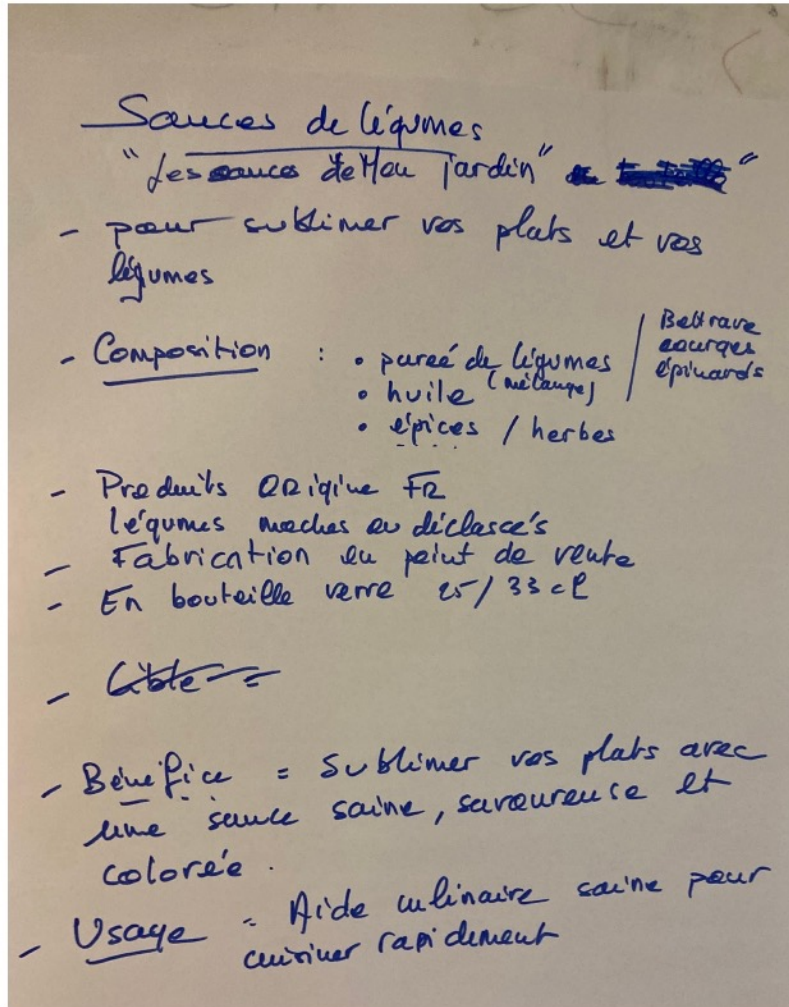 Sauces de légumes
"Les sauces de Mon jardin" "
- pour sublimer vos plats et vos
légumes
- Composition : • pureé de légumes / Bettrave
courges
épinards
• huile (mélange)
• épices / herbes
- Produits ORigine FR
légumes moches ou déclassés
- Fabrication en point de vente
- En bouteille verre 25/33 cl
- Cible =
- Bénéfice = Sublimer vos plats avec
une sauce saine, savoureuse et
colorée.
- Usage = Aide culinaire saine pour
cuisiner rapidement